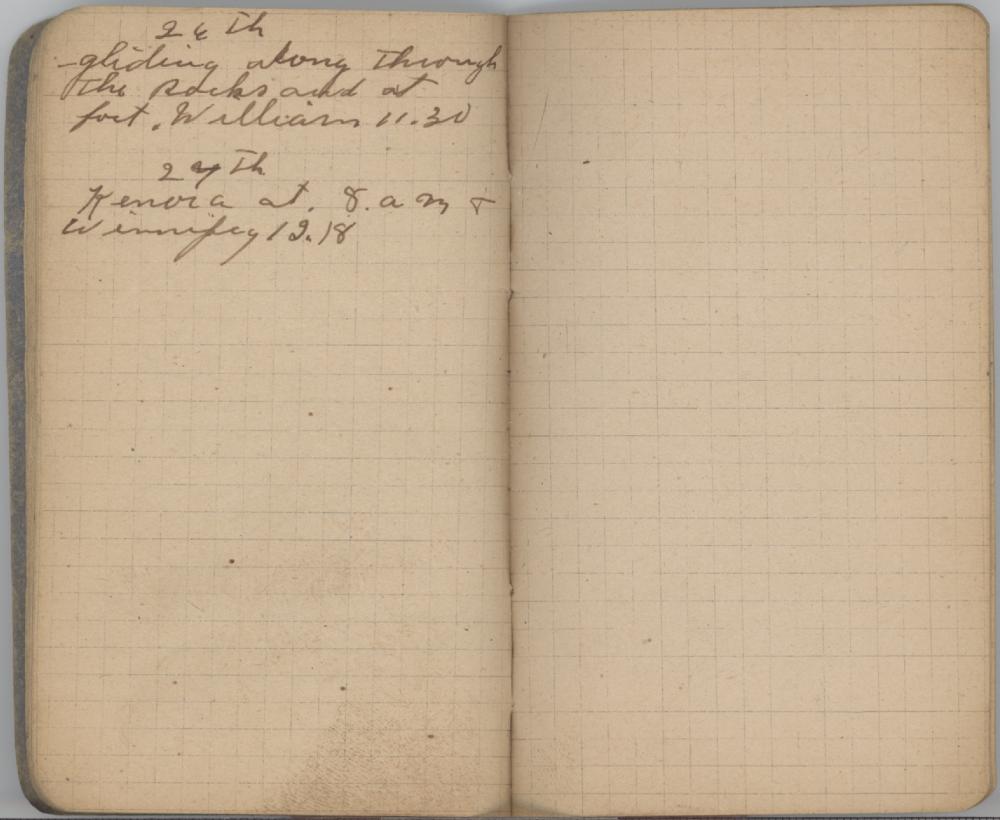 26th
-gliding along through
the Rocks and at
fort. William 11.30
27th
Kenora at. 8. a m &
Winnipeg 12.18